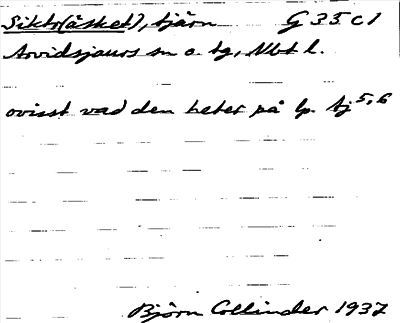 Sikto(åsket), tjärn G 35 c 1
Arvidsjaurs sn o. tg, Nbt l.
ovisst vad den heter på lp. tj 5,6
Björn Collinder 1937